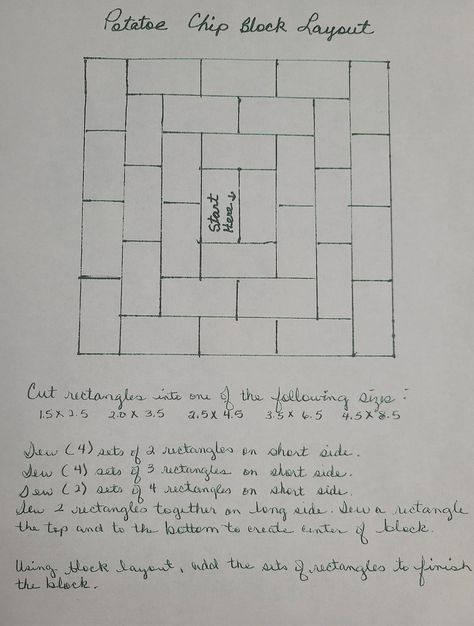 Potatoe Chip Block Layout
Start
Here ↓
Cut rectangles into one of the following sizes:
1.5 x 2.5 2.0 x 3.5 2.5 x 4.5 3.5 x 6.5 4.5 x 8.5
Sew (4) sets of 2 rectangles on short side.
Sew (4) sets of 3 rectangles on short side.
Sew (2) sets of 4 rectangles on short side.
Sew 2 rectangles together on long side. Sew a rectangle
the top and to the bottom to create center of block.
Using block layout, add the sets of rectangles to finish
the block.